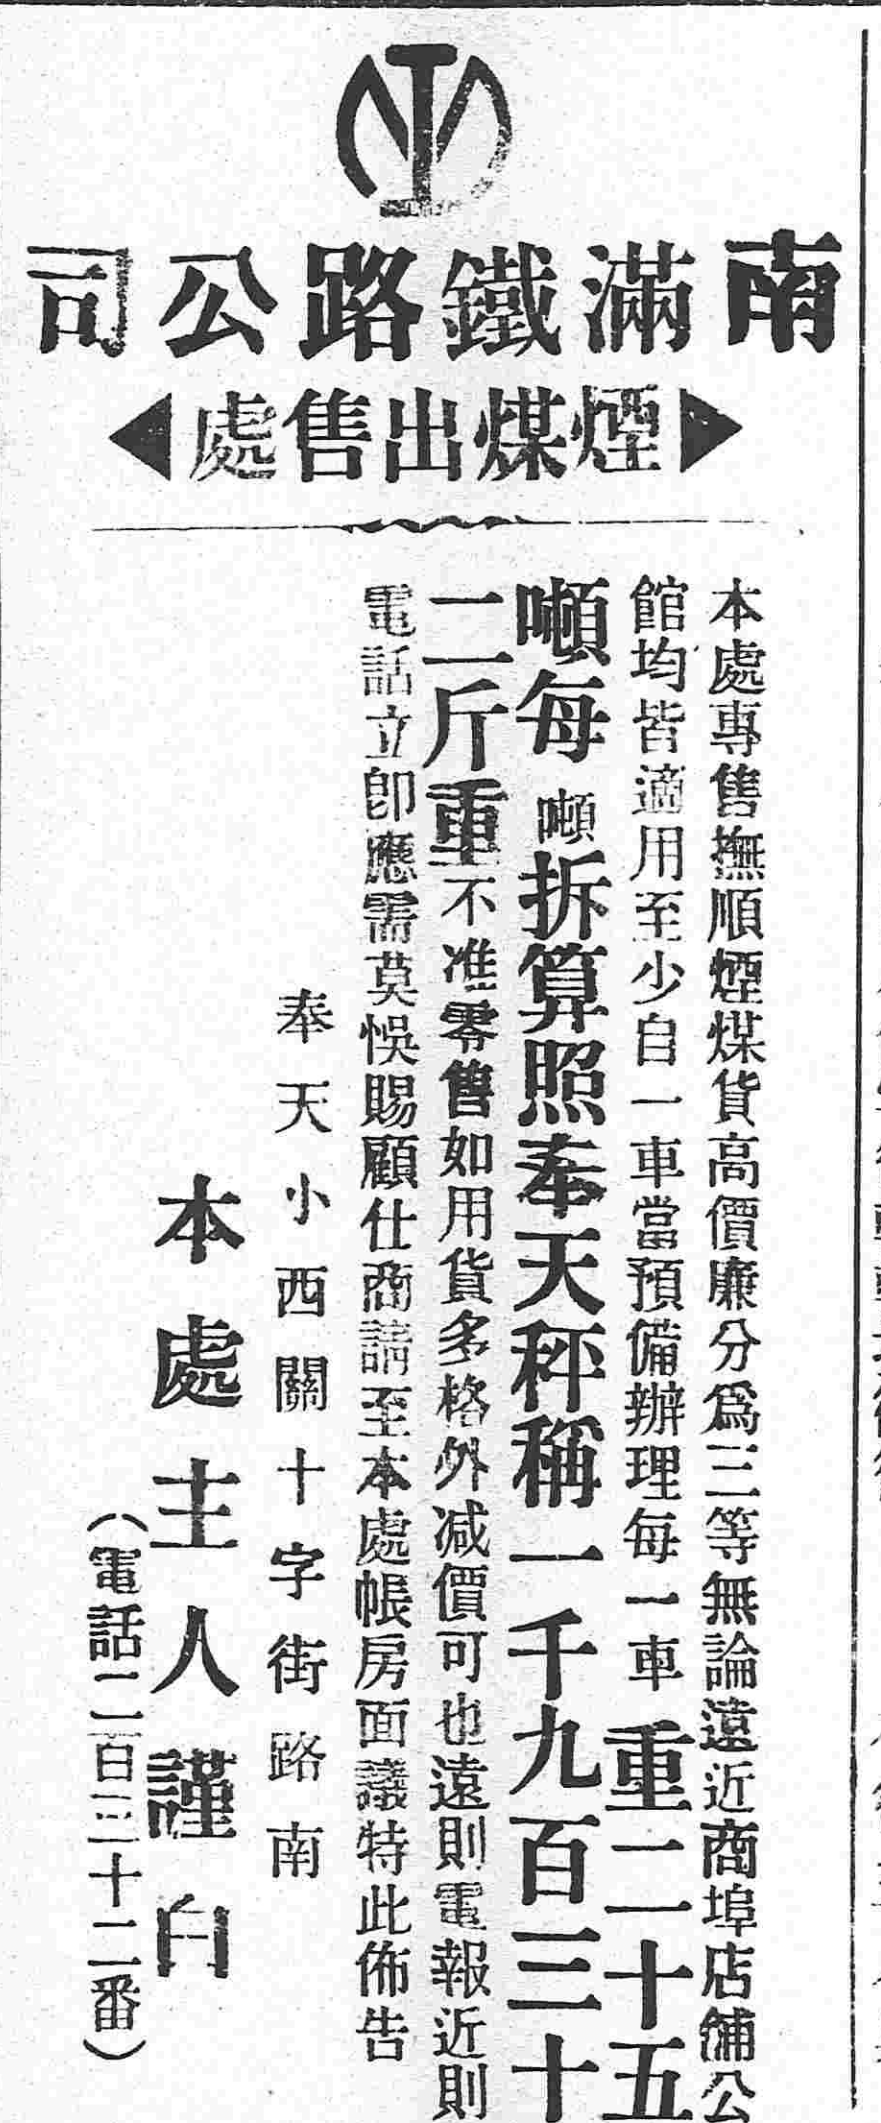 南滿鐵路公司
煙煤出售處
本處專售撫順煙煤貨高價廉分爲三等無論遠近商埠店舖公
館均皆適用至少自一車當預備辦理每一車重二十五
噸每噸拆算照奉天秤稱一千九百三十
二斤重不准零售如用貨多格外减價可也遠則電報近則
電話立卽應需莫悞賜顧仕商請至本處帳房面議特此佈告
奉天小西關十字街路南
本處主人謹白
(電話二百三十二番)